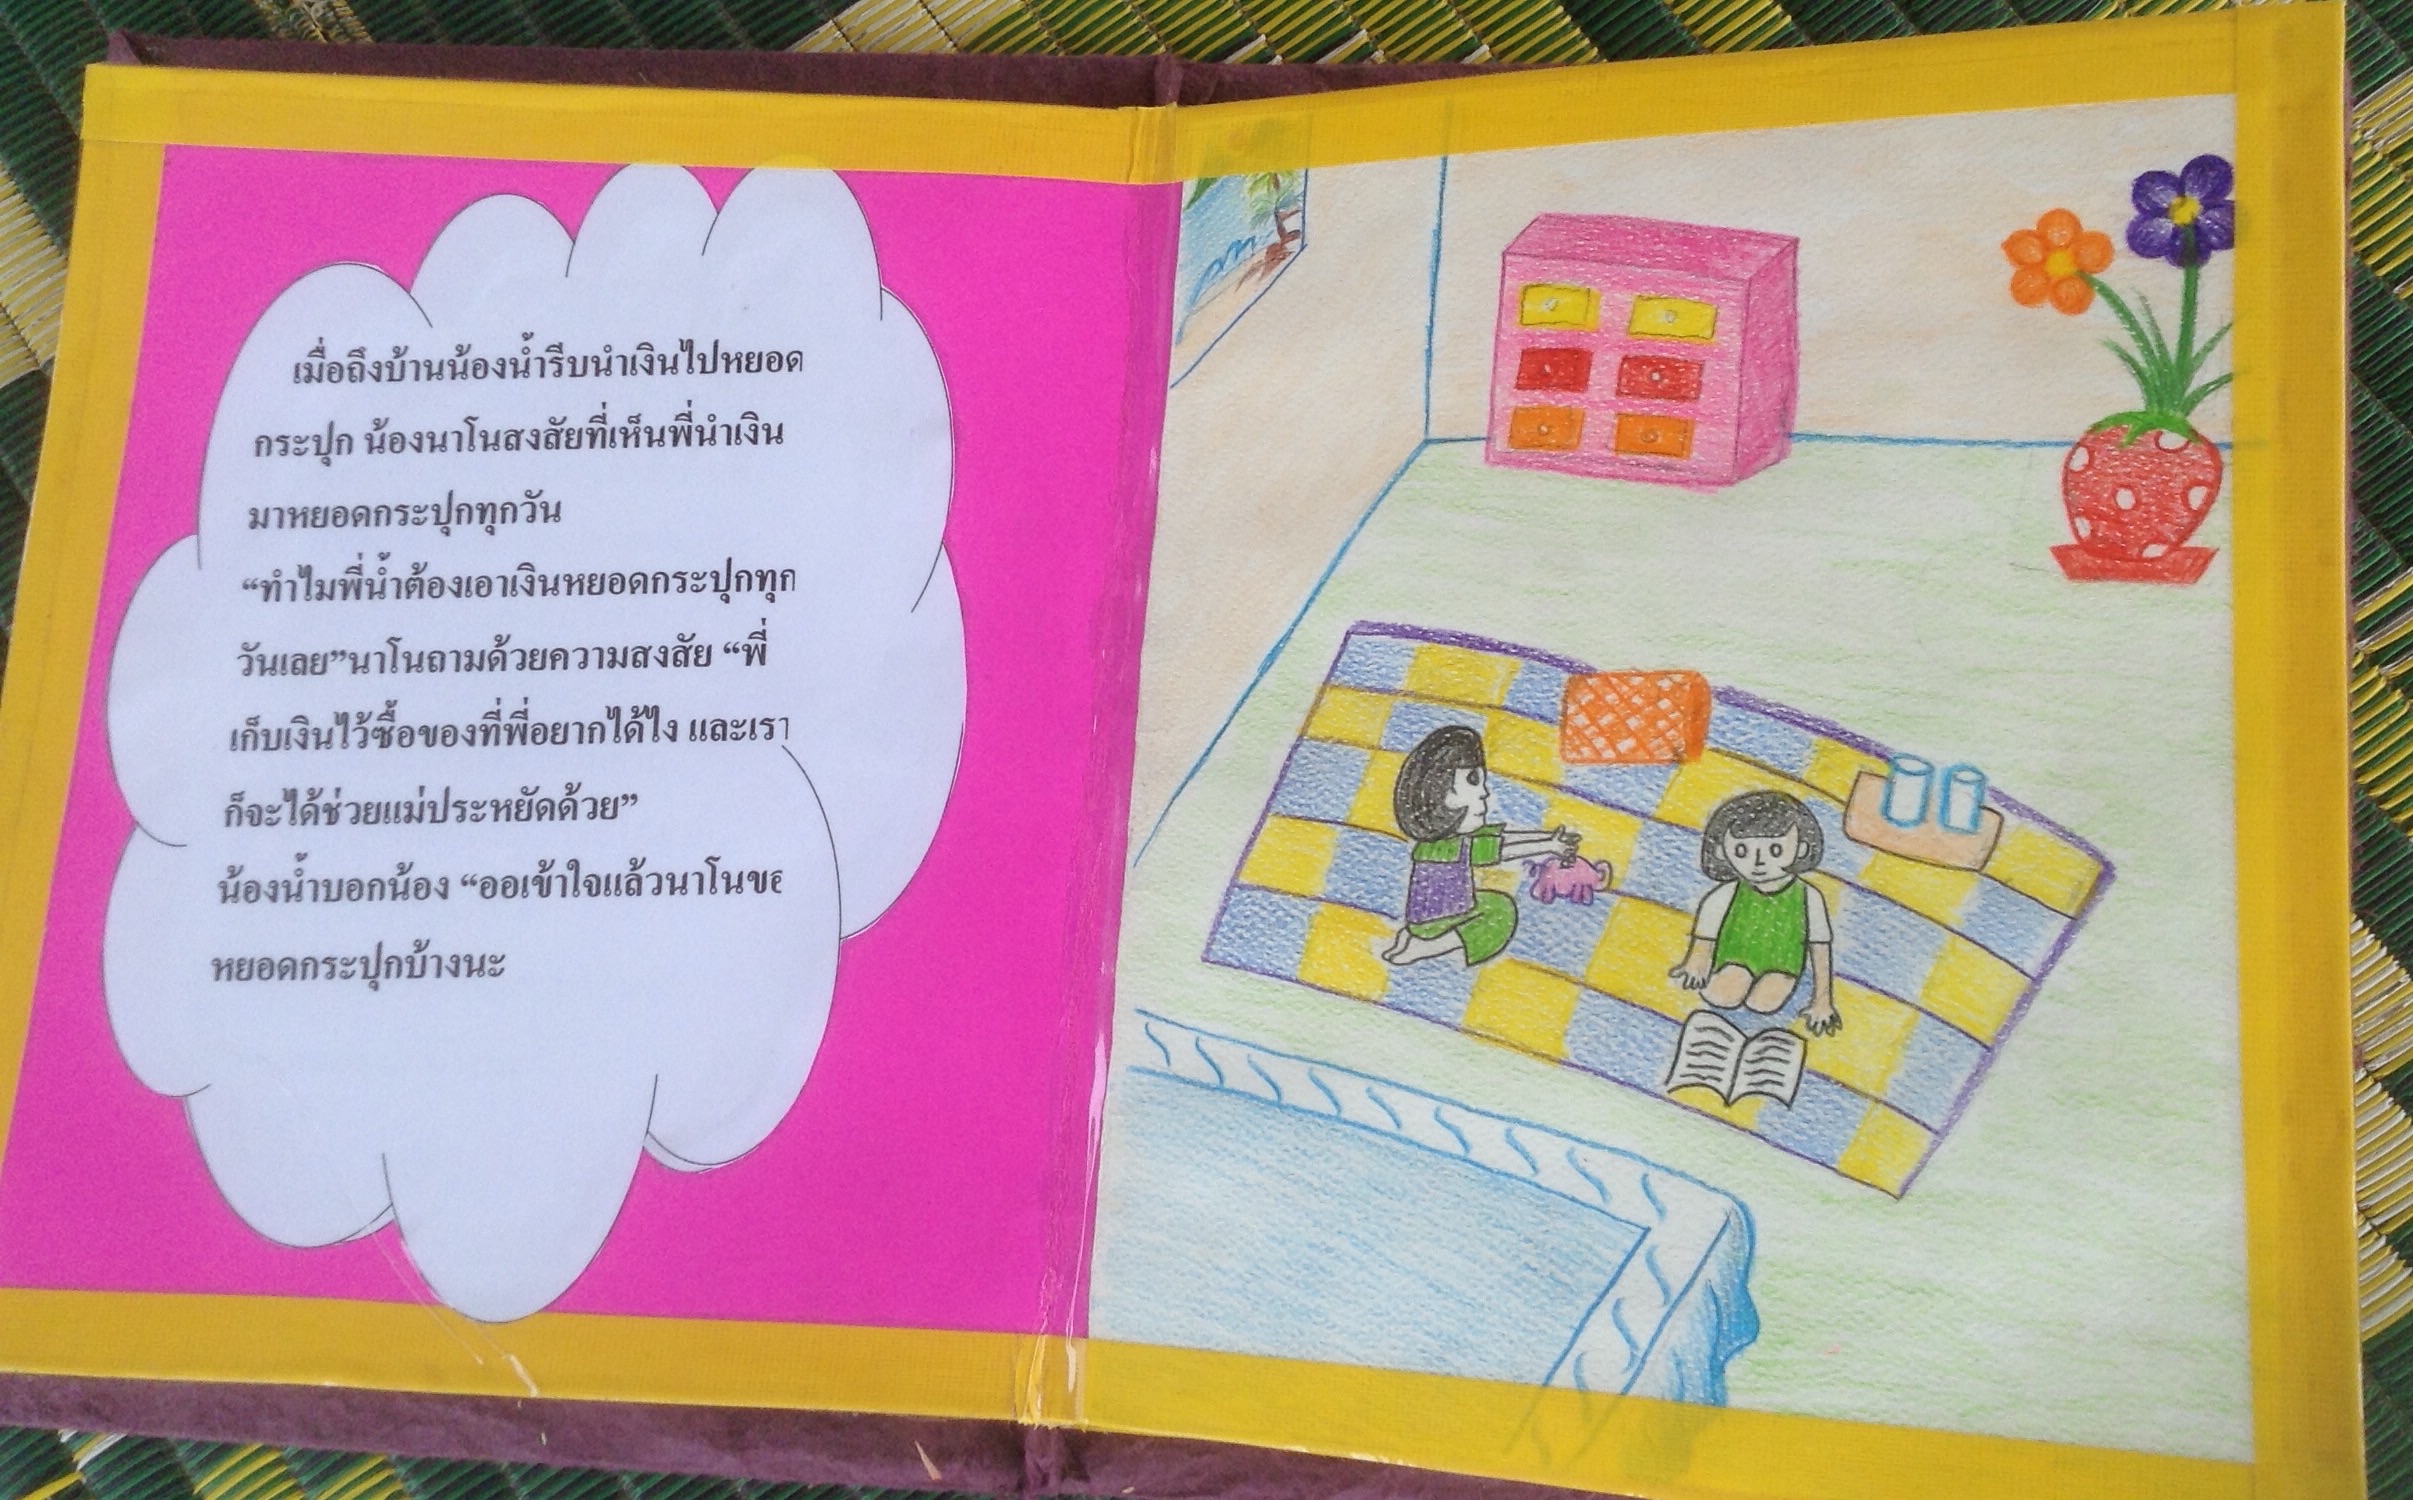 เมื่อถึงบ้านน้องน้ำรีบนำเงินไปหยอด
กระปุก น้องนาโนสงสัยที่เห็นพี่นำเงิน
มาหยอดกระปุกทุกวัน
“ทำไมพี่น้ำต้องเอาเงินหยอดกระปุกทุก
วันเลย”นาโนถามด้วยความสงสัย “พี่
เก็บเงินไว้ซื้อของที่พี่อยากได้ไง และเรา
ก็จะได้ช่วยแม่ประหยัดด้วย”
น้องน้ำบอกน้อง “ออเข้าใจแล้วนาโนขอ
หยอดกระปุกบ้างนะ